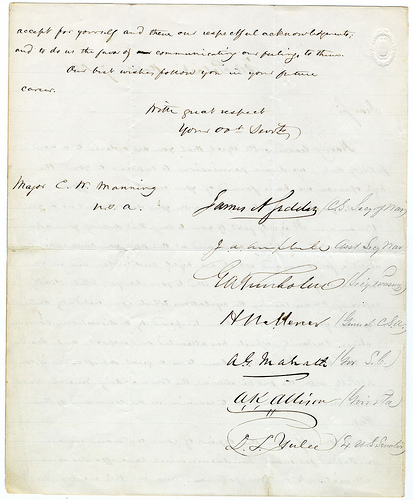 accept for yourself and them our respectful acknowledgements,
and to do us the favor of communicating our feelings to them.
Our best wishes follow you in your future
career.
With great respect
Your obt Servts
Major C. W. Manning
U.S.A.
James A Seddon (C.S. Secy of War)
J A Campbell (Asst Secy War)
G A Trenholm (Secy Treasury)
H W Mercer (Genrl C.S.A.)
A G Magrath (Gov S.C.)
A K Allison (Gov Fla)
D. L. Yulee (Ex U.S. Senator)